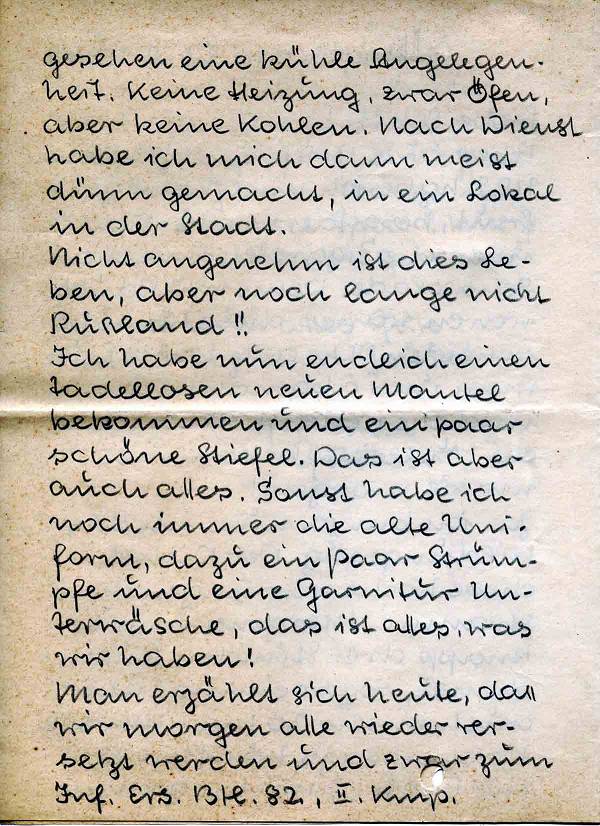 gesehen eine kühle Angelegen-
heit. Keine Heizung, zwar Öfen,
aber keine Kohlen. Nach Dienst
habe ich mich dann meist
dünn gemacht, in ein Lokal
in der Stadt.
Nicht angenehm ist dies Le-
ben, aber noch lange nicht
Rußland!!
Ich habe nun endlich einen
tadellosen neuen Mantel
bekommen und ein paar
schöne Stiefel. Das ist aber
auch alles. Sonst habe ich
noch immer die alte Uni-
form, dazu ein Paar Strüm-
pfe und eine Garnitur Un-
terwäsche, das ist alles, was
wir haben!
Man erzählt sich heute, daß
wir morgen alle wieder ver-
setzt werden und zwar zum
Inf. Ers. Btl. 82, II. Kmp.